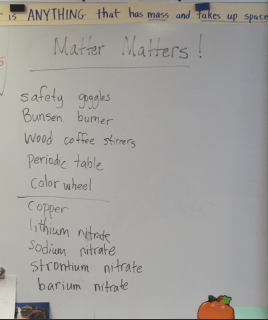 is ANYTHING that has mass and takes up space
Matter Matters!
safety goggles
Bunsen burner
Wood coffee stirrers
Periodic table
Color wheel
Copper
lithium nitrate
Sodium nitrate
Strontium nitrate
barium nitrate